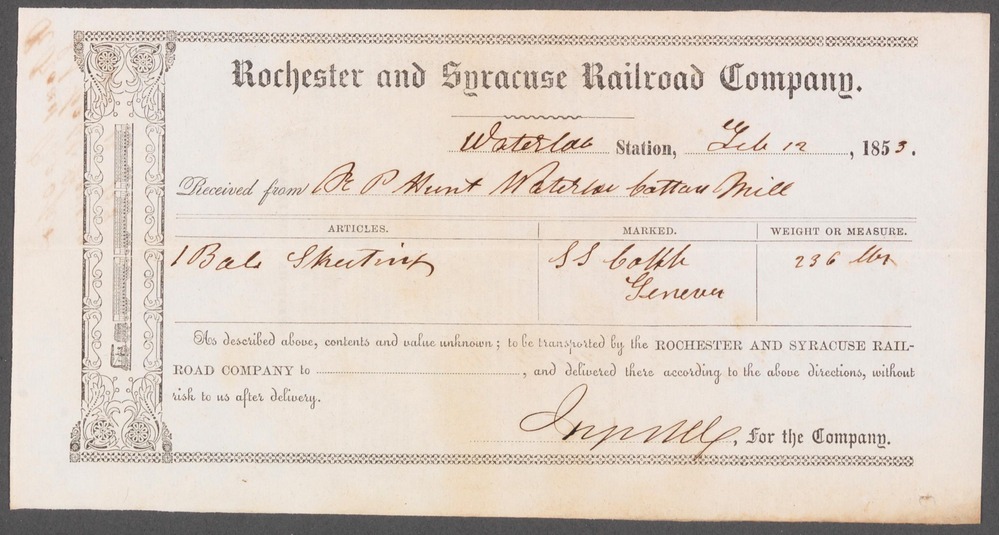 Rochester and Syracuse Railroad Company.
Waterloo Station, Feb 12, 1853.
Received from R P Hunt Waterloo Cotton Mill
ARTICLES. MARKED. WEIGHT OR MEASURE.
1 Bale Sheeting S S Cobb 236 lbs
Geneva
As described above, contents and value unknown; to be transported by the ROCHESTER AND SYRACUSE RAIL-
ROAD COMPANY to , and delivered there according to the above directions, without
risk to us after delivery.
, For the Company.